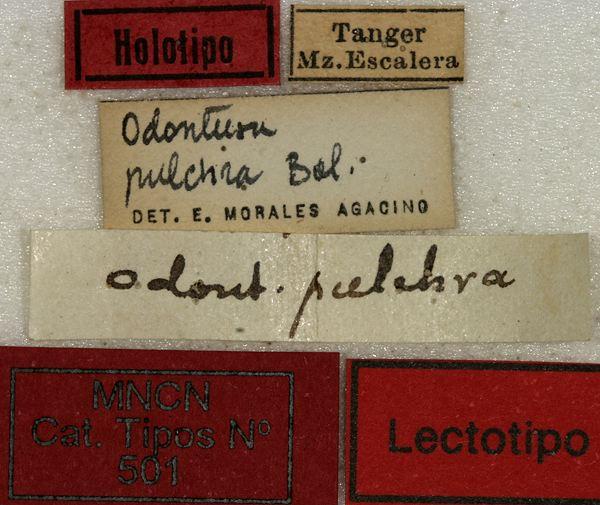 Holotipo
Tanger
Mz. Escalera
Odontura
pulchra Bol.
DET. E. MORALES AGACINO
Odont. pulchra
MNCN
Cat. Tipos Nº
501
Lectotipo